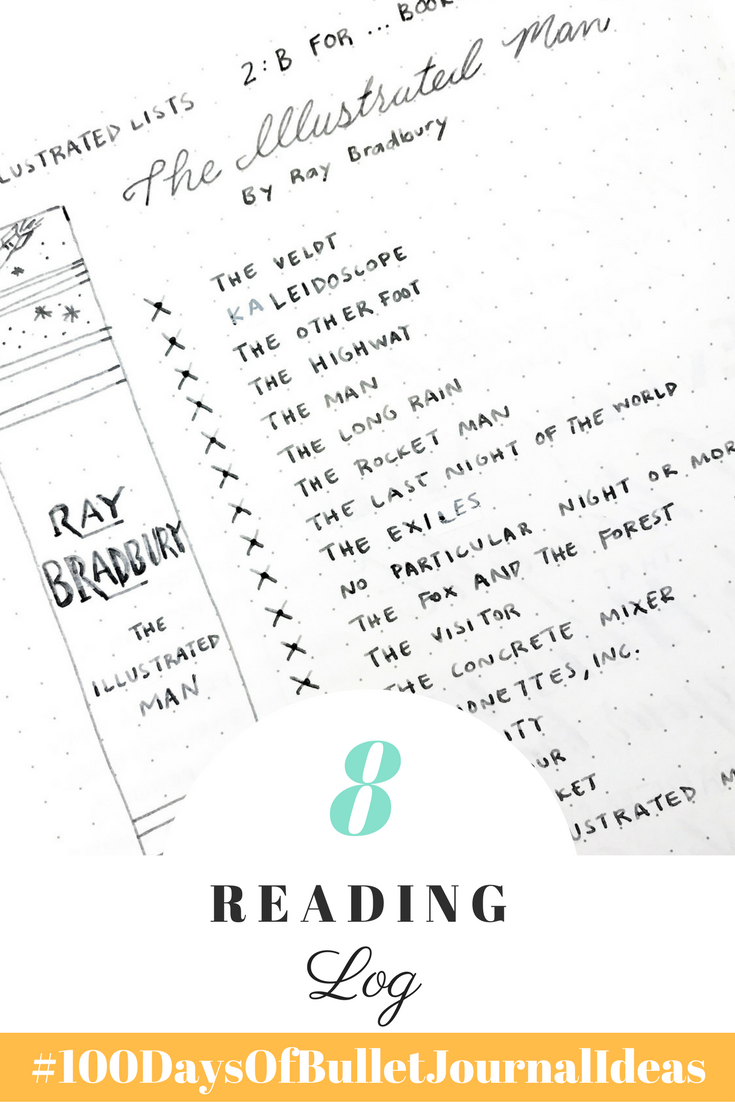 2: B FOR ... BOOK
LUSTRATED LISTS
The Illustrated Man
By Ray Bradbury
THE VELDT
KALEIDOSCOPE
THE OTHER FOOT
THE HIGHWAT
THE MAN
THE LONG RAIN
THE ROCKET MAN
THE LAST NIGHT OF THE WORLD
THE EXILES
NO PARTICULAR NIGHT OR MOR
THE FOX AND THE FOREST
THE VISITOR
THE CONCRETE MIXER
ONETTES, INC.
ITY
UR
KET
USTRATED M
RAY
BRADBURY
THE
ILLUSTRATED
MAN
8
READING
Log
#100DaysOfBulletJournalIdeas